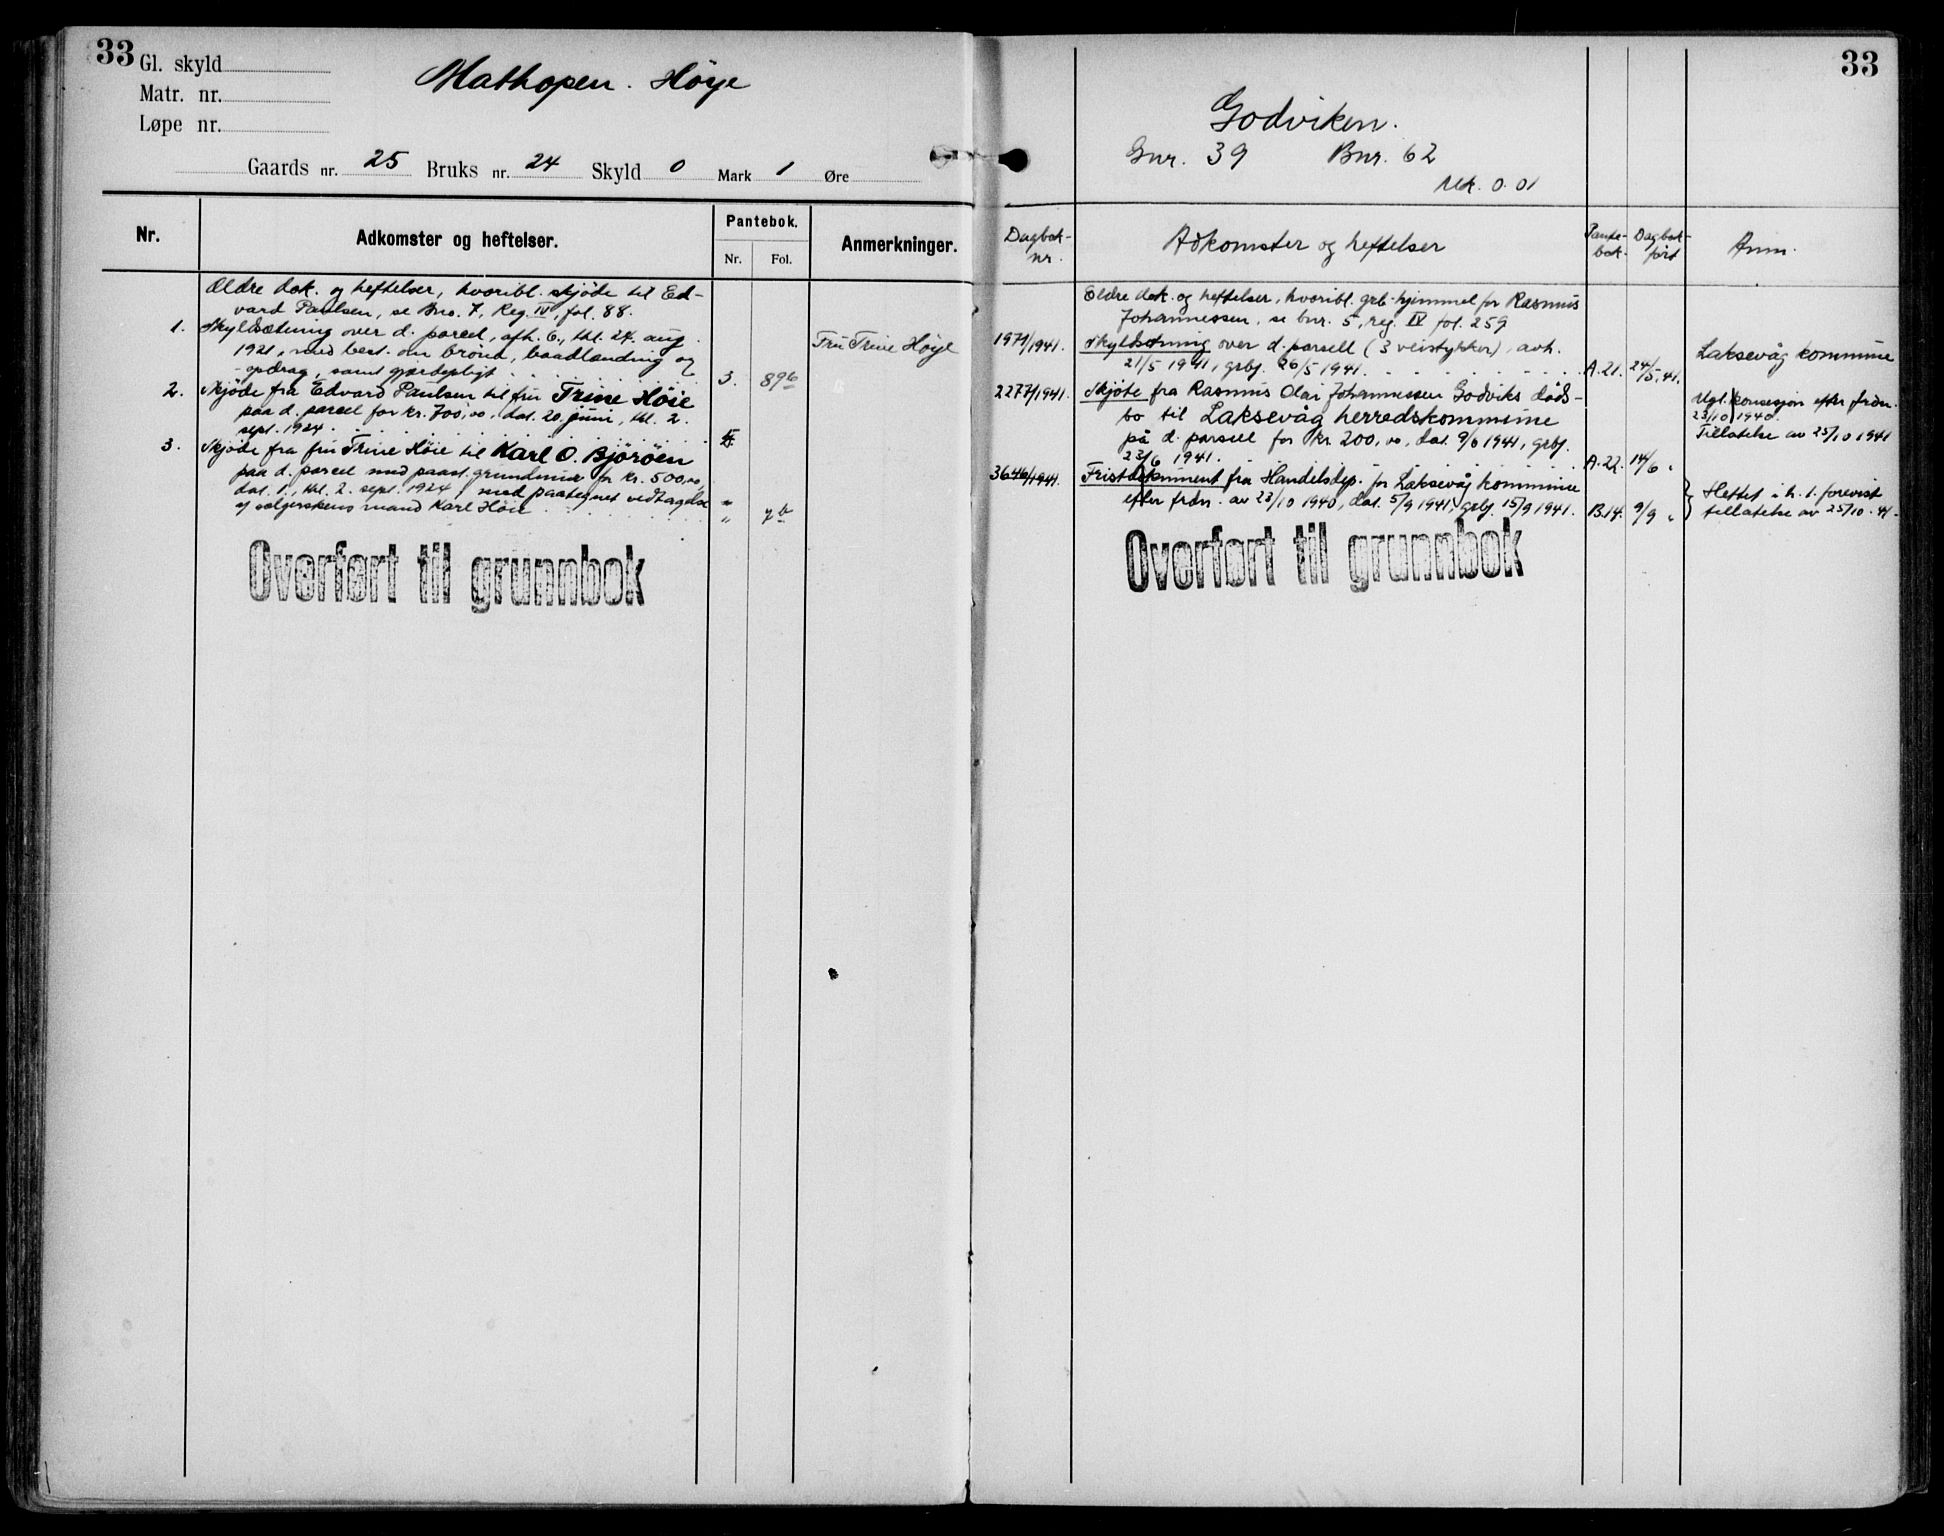 33
Gl. skyld
Matr. nr.
Løpe nr.
Mathopen. Höye
Gaards nr. 25 Bruks nr. 24 Skyld 0 Mark 1 Øre
Nr.
Adkomster og heftelser.
Pantebok.
Nr. Fol.
Anmerkninger.
Ældre dok. og heftelser, hvoribl. skjöde til Ed-
vard Paulsen, se Bno. 7, Reg. IV, fol. 88.
1. Skyldsætning over d. parcel, afh. 6., thl. 24. aug.
1921, med best. om brönd, baadlanding og
opdrag, samt gjærdepligt 3. 896 Fru Trine Höye
2. Skjöde fra Edvard Paulsen til fru Trine Höie
paa d. parcel for kr. 700,00, dat. 20. juni, thl. 2.
sept. 1924.
3. Skjöde fra fru Trine Höie til Karl O. Björöen
paa d. parcel med paast. grundmur for kr. 500,00,
dat. 1., thl. 2. sept. 1924, med paategnet vedtagelse
af sælgerskens mand Karl Höie " 7b
Overført til grunnbok
33
Godviken.
Gnr. 39 Bnr. 62
Mk. 0.01
Dagbok-
nr.
Adkomster og heftelser
Pante-
bok.
Dagbok-
ført
Anm.
Eldre dok. og heftelser, hvoribl. grb. hjemmel for Rasmus
Johannessen, se bnr. 5, reg. IV fol. 259
1971/1941. Skyldsetning over d. parsell (3 veistykker), avh.
21/5 1941, grbf. 26/5 1941. A.21. 24/5.41. Laksevåg kommune
2277/1941. Skjøte fra Rasmus Olai Johannessen Godviks døds-
bo til Laksevåg herredskommune
på d. parsell for kr 200,00, dat. 9/6 1941, grbf.
23/6 1941. A.22. 14/6 "
Mgl. konsesjon efter frdn.
23/10 1940.
Tillatelse av 25/10 1941
3646/1941. Fristdokument fra Handelsdep. for Laksevåg kommune
efter frdn. av 23/10 1940, dat. 5/9 1941, grbf. 15/9 1941. B.14. 9/9 "
Slettet i h. t. forevist
tillatelse av 25/10-41-
Overført til grunnbok